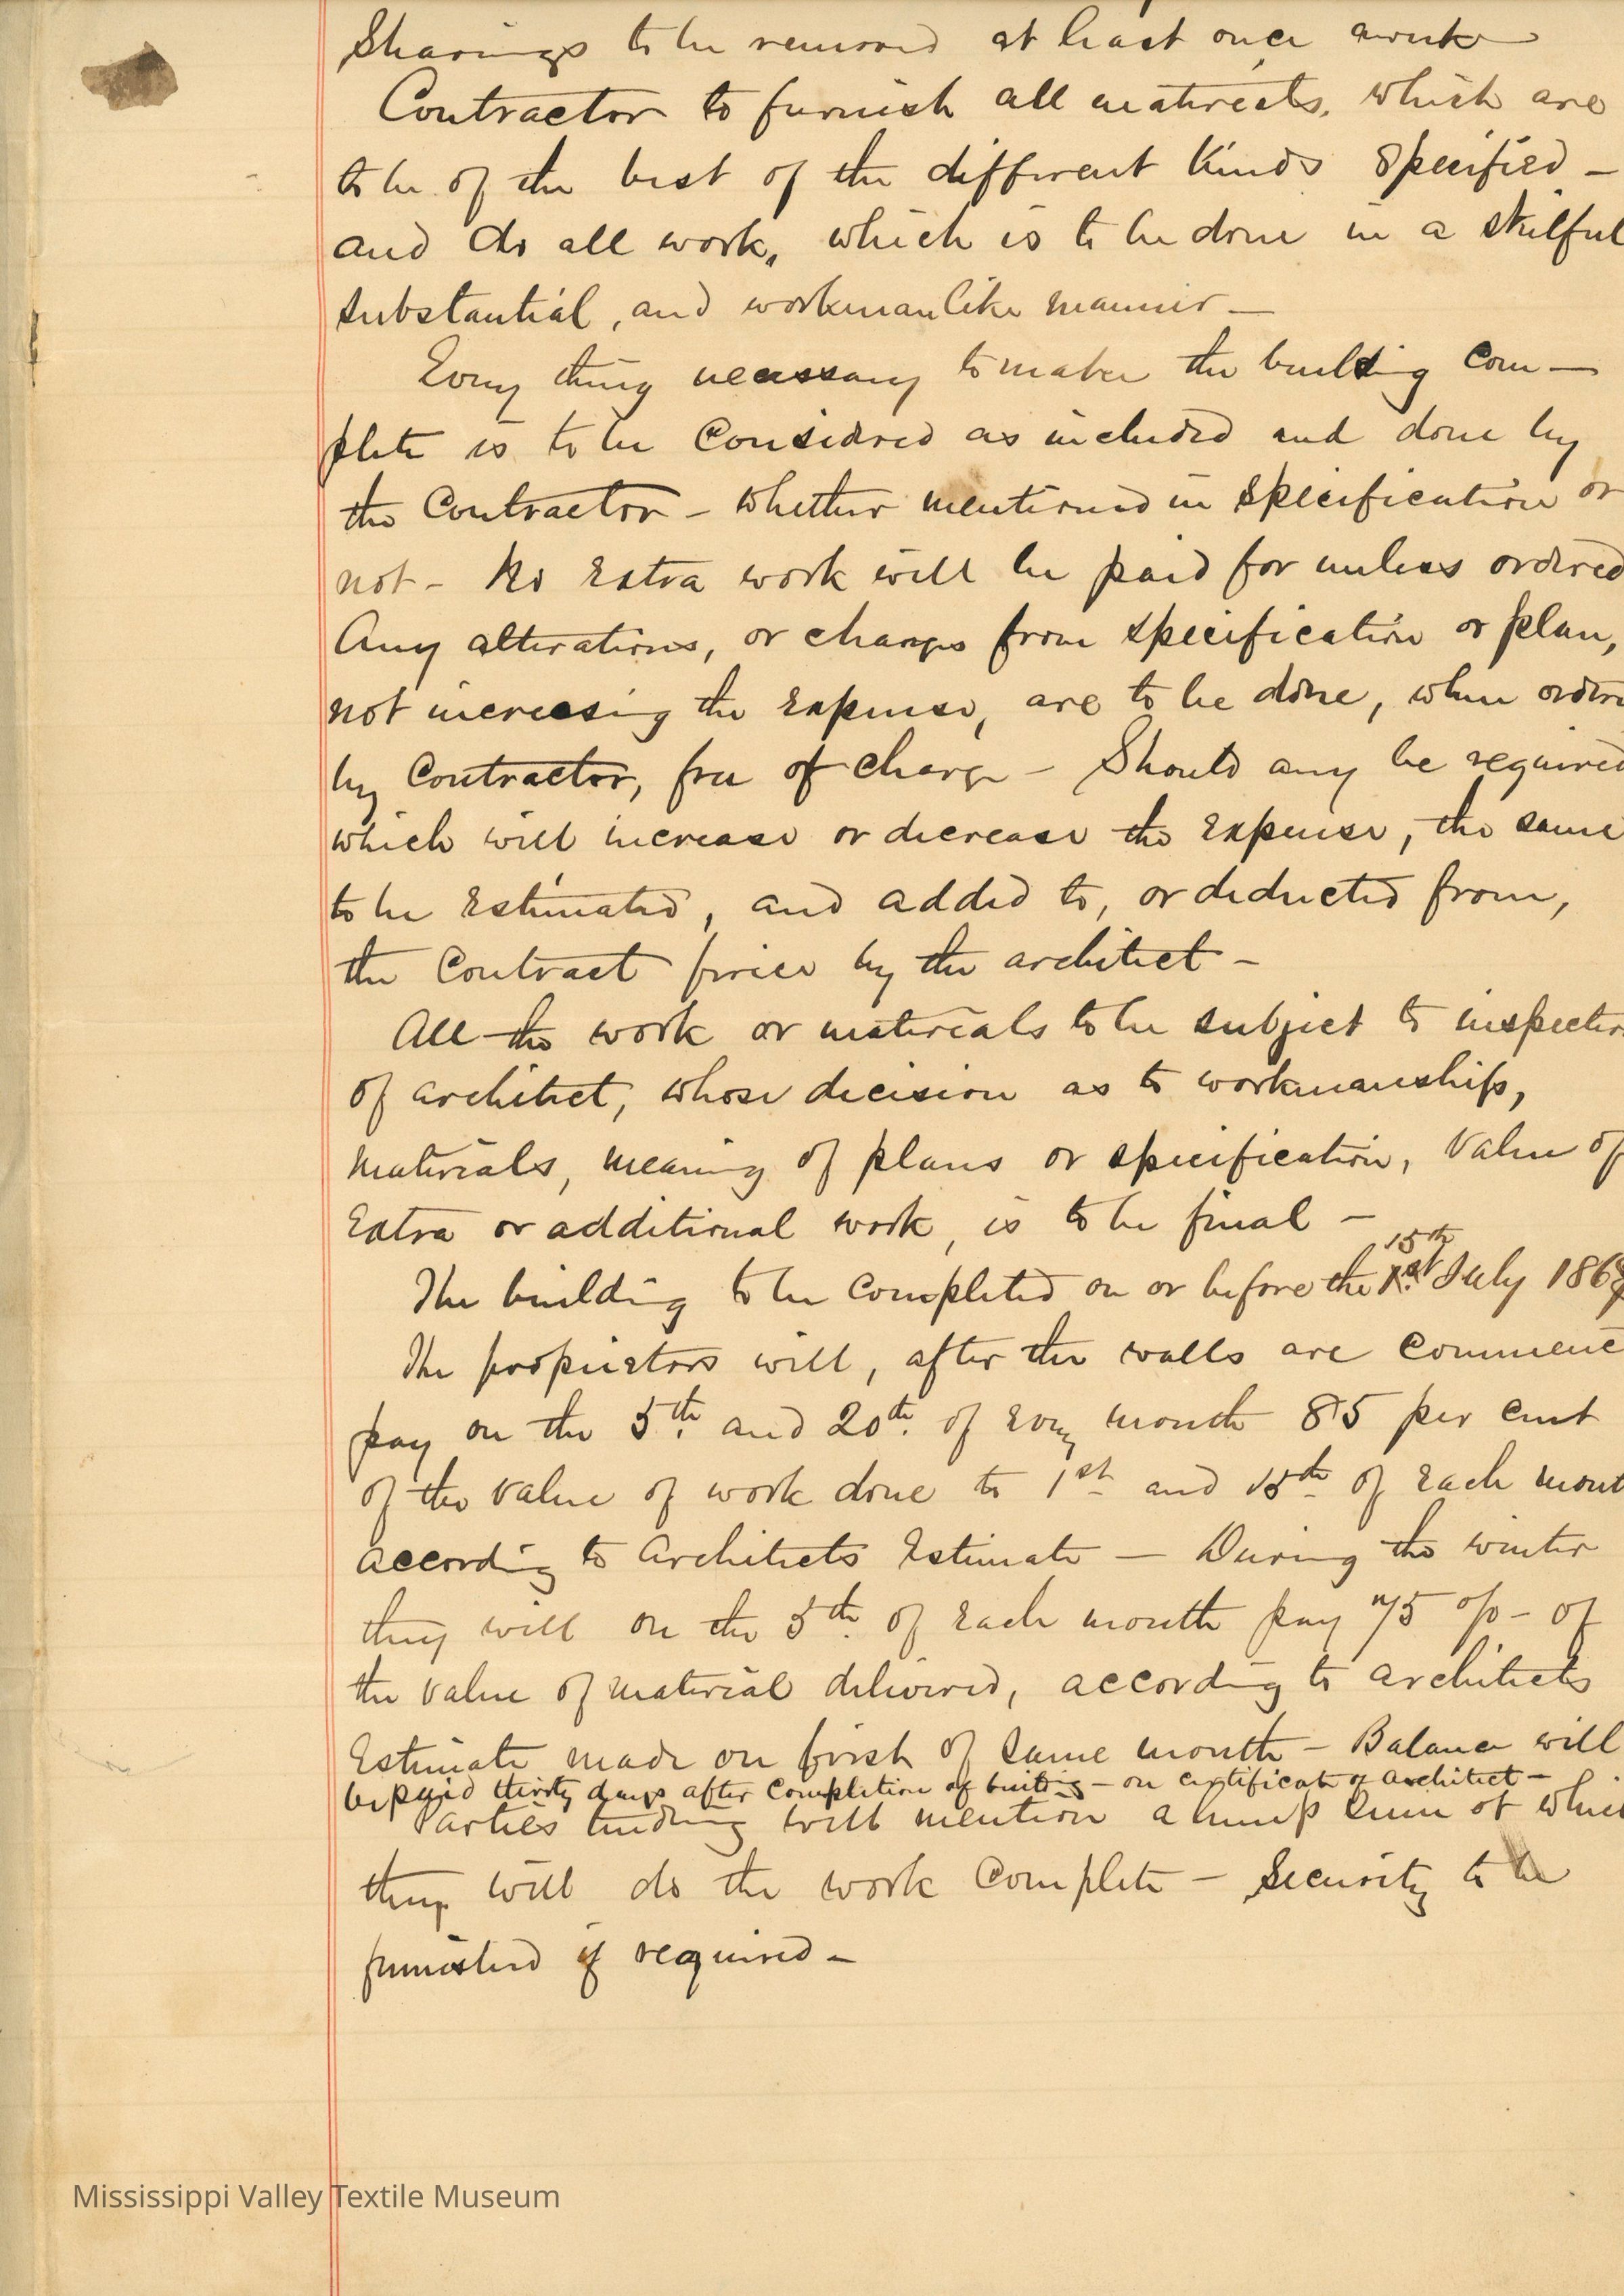 Shavings to be removed at least once a week
Contractor to furnish all materials, which are
to be of the best of the different Kinds Specified –
and do all work, which is to be done in a skilful
substantial, and workmanlike manner –
Every thing necessary to make the building Com –
plete is to be Considered as included and done by
the Contractor – Whether mentioned in Specification or
not – No Extra work will be paid for unless ordered
Any alterations, or changes from specification or plan,
not increasing the Expense, are to be done, when ordere
by Contractor, free of charge – Should any be required
which will increase or decrease the Expense, the same
to be Estimated, and added to, or deducted from,
the Contract price by the architect –
All the work or materials to be subject to inspection
of architect, whose decision as to workmanship,
Materials, meaning of plans or specification, Value of
Extra or additional work, is to be final –
15th
The building to be Completed on or before the 1st July 186
The proprietors will, after the walls are Commenc
pay on the 5th. and 20th. of Every month 85 per Cent
of the Value of work done to 1st and 15th of Each mont
according to Architects Estimate – During the winter
they will on the 5th. of Each month pay 75 o/o – of
the Value of material delivered, according to architects
Estimate made on first of same month – Balance will
be paid thirty days after Completion of building – on certificate of architect –
Parties tendring will mention a lump Sum at whic
they will do the work Complete – Security to be
furnished if required –
Mississippi Valley Textile Museum